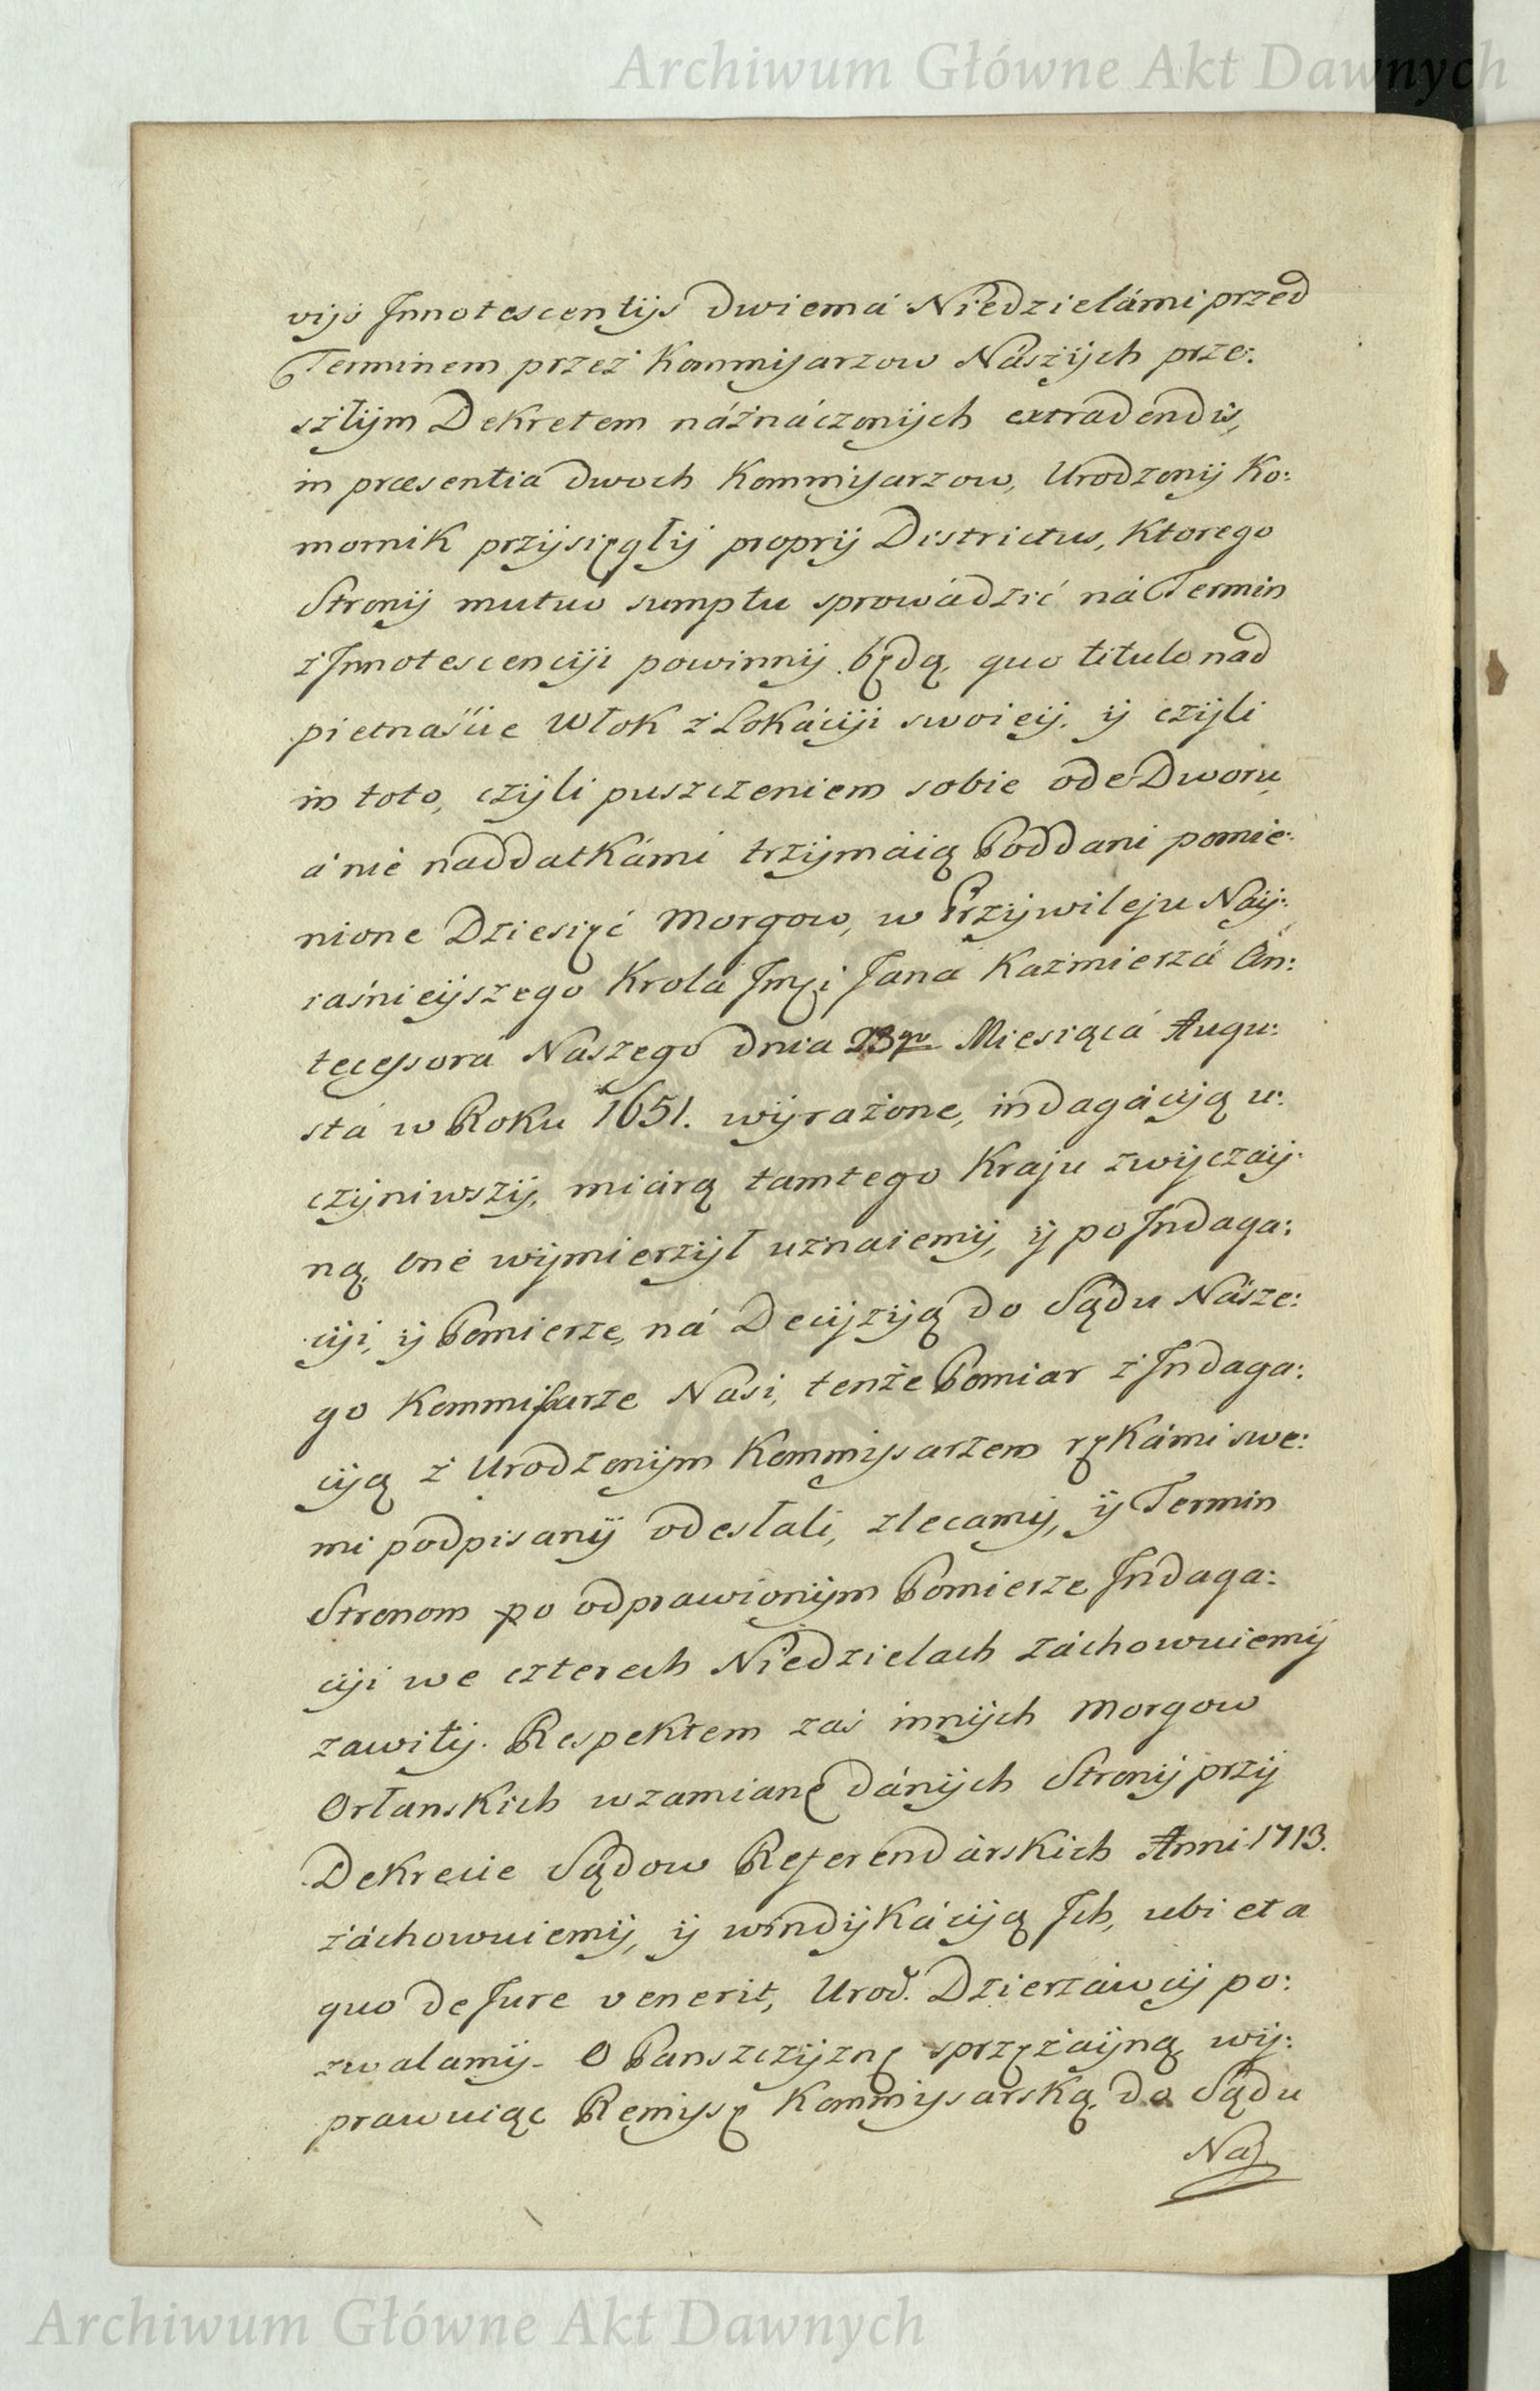 Archiwum Główne Akt Dawnych
vijs Innotescentijs dwiemá Niedzielámi przed
Terminem przez Kommisarzow Nászÿch prze:
szłÿm Dekretem náznáczonÿch extradendis,
in præsentia dwoch Kommisarzow, Urodzonÿ Ko:
mornik przÿsięgłÿ proprij Districtus, Ktorego
Stronÿ mutuo sumptu sprowádzić ná Termin
z Innotescencÿi powinnÿ będą, quo titulo nad
pietnaście Włok z Lokácÿi swoieÿ, ÿ czÿli
in toto, czÿli puszczeniem sobie ode Dworu,
á nie naddatkámi trzÿmáią Poddani pomie:
nione Dziesięć Morgow, w Przÿwileju Naÿ:
iaśnieÿszego Krolá Imci Janá Kaźmierzá An:
tecessorá Naszego dnia 23go Miesiącá Augu:
stá w Roku 1651. wÿrażone, indagácÿą u:
czÿniwszÿ, miárą tamtego Kraju zwÿczaÿ:
ną, one wÿmierzÿł uznaiemÿ, ÿ po Indaga:
cÿi, ÿ Pomierze, ná Decÿzÿą do Sądu Násze:
go Kommissarze Nasi, tenże Pomiar z Indaga:
cÿą z Urodzonÿm Kommissarzem rękámi swe:
mi podpisanÿ odesłali, zlecamÿ, ÿ Termin
Stronom po odprawionÿm Pomierze Indaga:
cÿi we czterech Niedzielach záchowuiemÿ
zawitÿ. Respektem zaś innÿch Morgow
Orlanskich w zamianę dánÿch Stronÿ przÿ
Dekrecie Sądow Referendárskich Anni 1713.
záchowuiemÿ, ÿ windÿkácÿą Ich, ubi et a
quo de Jure venerit, Urod. Dzierzáwcÿ po:
zwalamÿ. O Panszczÿznę sprzężaÿną, wÿ:
prawuiąc Remissę Kommissarską, do Sądu
Na
Archiwum Główne Akt Dawnych